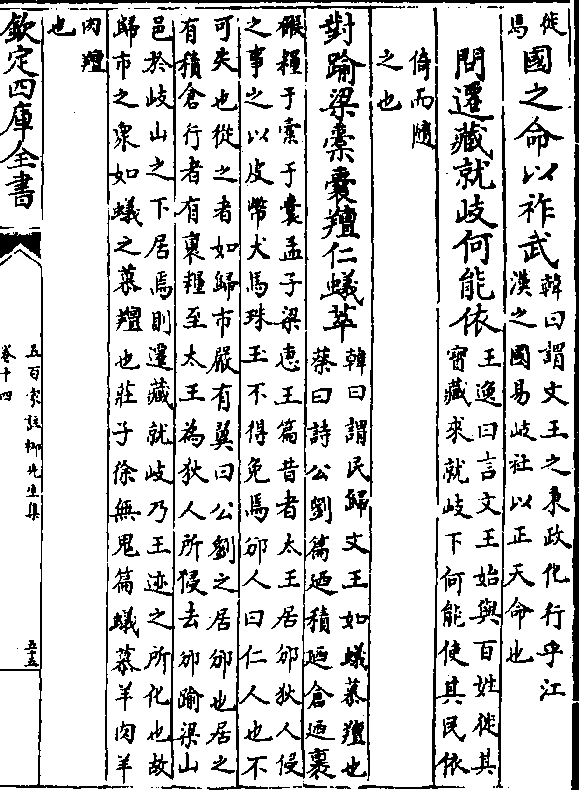 徙國之命以祚武韓曰謂文王之秉政化行乎江
焉漢之國易岐社以正天命也
問遷藏就岐何能依王逸曰言文王始與百姓徙其
寳藏來就岐下何能使其民依
倚而隨
之也
對踰梁橐囊羶仁蟻萃韓曰謂民歸文王如蟻慕羶也
蔡曰詩公劉篇迺積迺倉迺裹
餱糧于橐于囊孟子梁惠王篇昔者太王居邠狄人侵
之事之以皮幣犬馬珠玉不得免焉邠人曰仁人也不
可失也從之者如歸市嚴有翼曰公劉之居邠也居之
有積倉行者有裹糧至太王為狄人所侵去邠踰梁山
邑於岐山之下居焉則遷藏就岐乃王迹之所化也故
歸市之衆如蟻之慕羶也莊子徐無鬼篇蟻慕羊肉羊
肉羶
也
欽定四庫全書
五百家註柳先生集
卷十四
五五